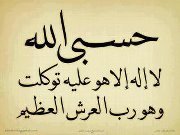 حسبي الله
لا إله إلا هو عليه توكلت
وهو رب العرش العظيم